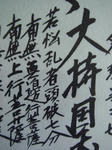 大持国
若悩乱者頭破七分
南無無邊行菩薩
南無上行菩薩